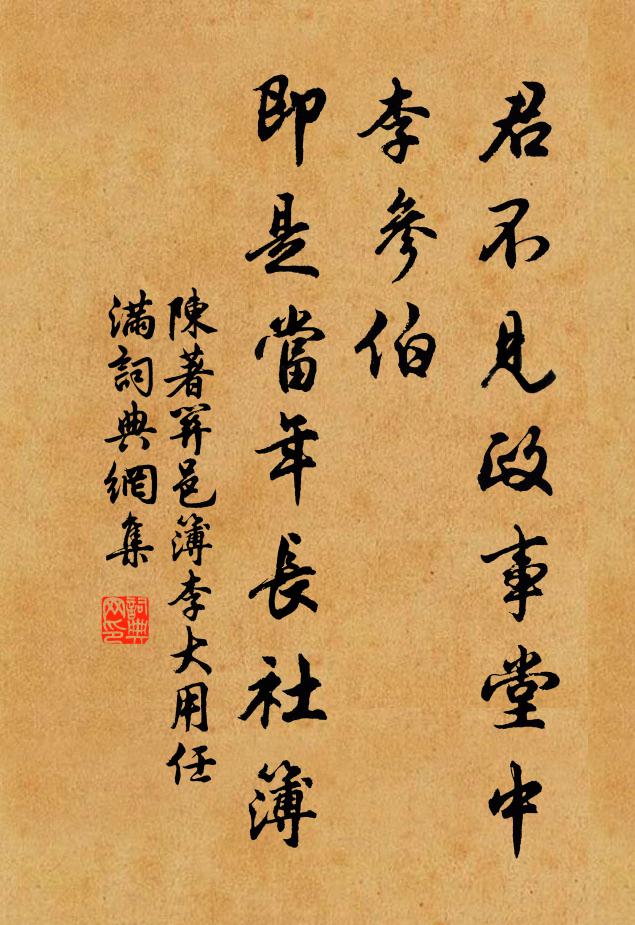 君不見政事堂中
李參伯
即是當年長社簿
陳著 邑簿李大用任
滿詞典網集
詞典网印